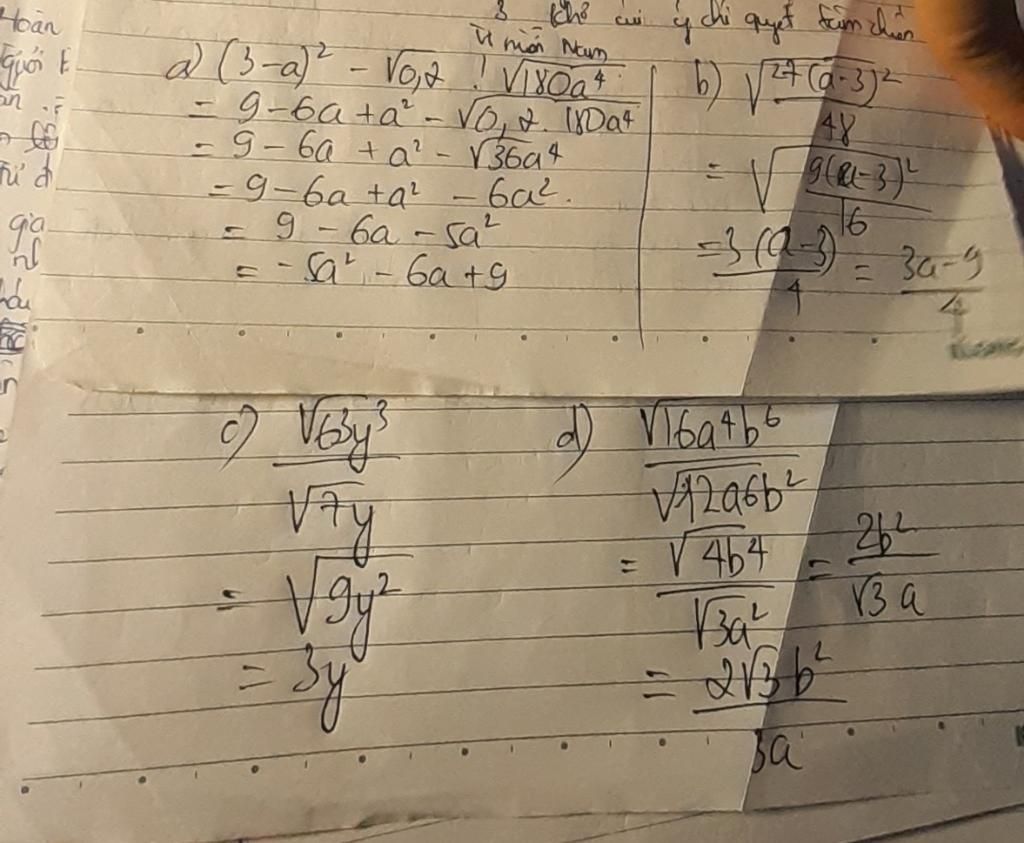 Hoàn
quới
3 khó ý chí quyết tâm
miền Nam
a) (3-a)² - √0,2 . √180a⁴
= 9-6a+a² - √0,2. 180a⁴
= 9 - 6a + a² - √36a⁴
= 9-6a +a² - 6a².
= 9 - 6a - 5a²
= -5a² - 6a+9
b) √27(a-3)²/48
= √9(a-3)²/16
= 3(a-3)/4 = 3a-9/4
gia
c) √63y³/√7y
= √9y²
= 3y
d) √16a⁴b⁶/√12a6b²
= √4b⁴/√3a² = 2b²/√3 a
= 2√3 b²/3a